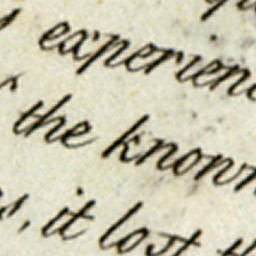 experienc
the known
, it lost